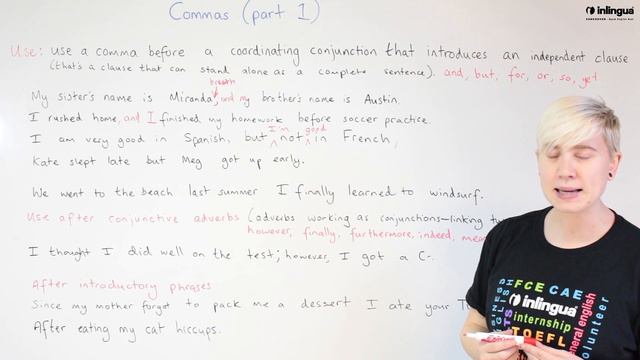 Commas (part 1)
inlingua®
Use: Use a comma before a coordinating conjunction that introduces an independent clause
(that's a clause that can stand alone as a complete sentence). and, but, for, or, so, yet
breath
My sister's name is Miranda, and my brother's name is Austin.
I rushed home, and I finished my homework before soccer practice.
I'm good
I am very good in Spanish, but not in French,
Kate slept late but Meg got up early.
We went to the beach last summer I finally learned to windsurf.
Use after conjunctive adverbs (adverbs working as conjunctions—linking tw
however, finally, furthermore, indeed, mean
I thought I did well on the test; however, I got a C-.
After introductory phrases
Since my mother forgot to pack me a dessert I ate your T
After eating my cat hiccups.
FCE CAE
inlingua
internship
TOEFL
general english
volunteer